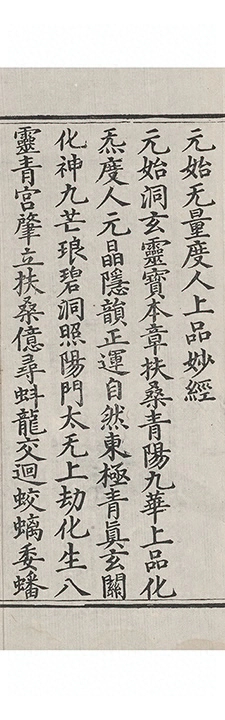 元始无量度人上品妙經
元始洞玄靈寶本章扶桑青陽九華上品化
炁度人元晶隱韻正運自然東極青眞玄關
化神九芒琅碧洞照陽門太无上劫化生八
靈青宮肇立扶桑億尋蚪龍交迴蛟螭委蟠